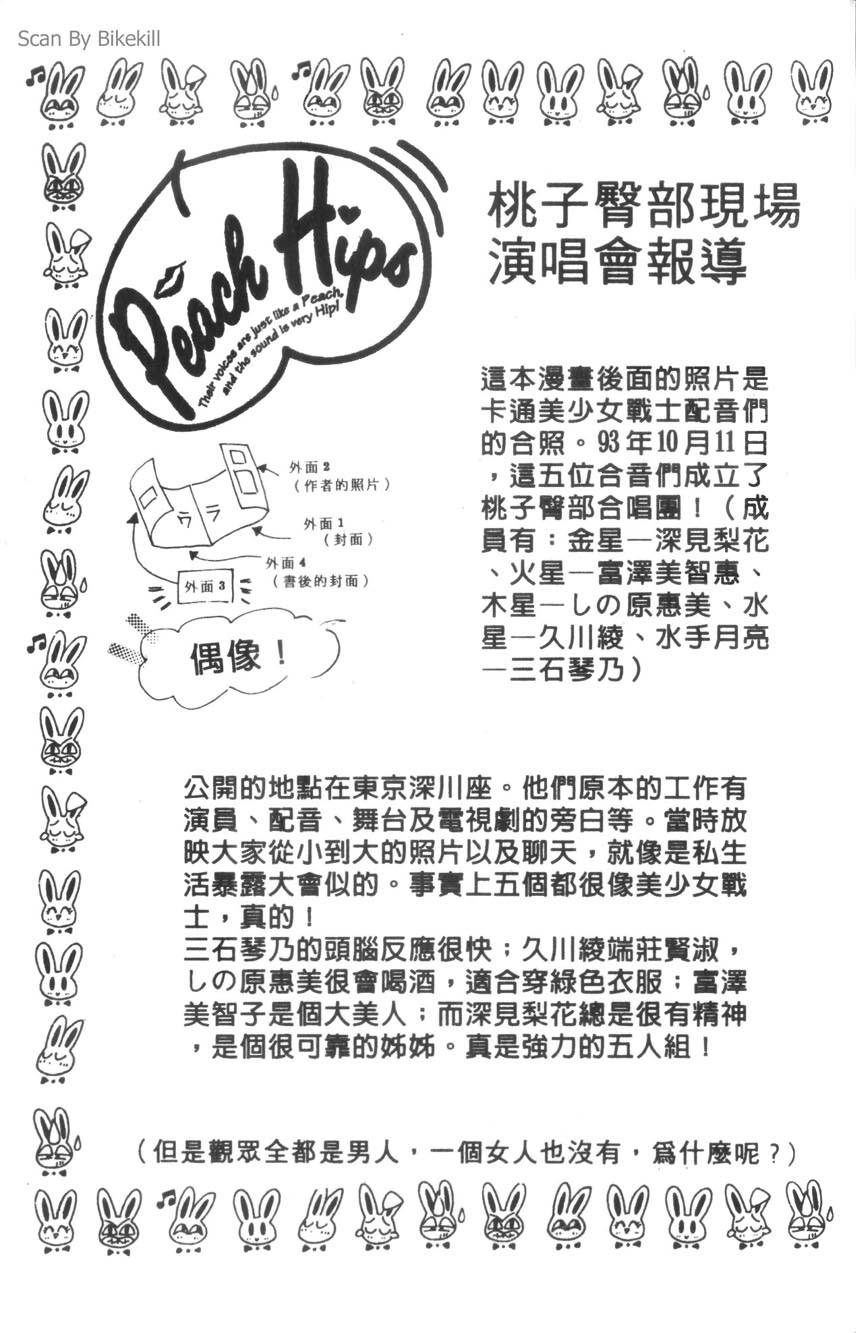 Scan By Bikekill
Peach Hips
Their voices are just like a Peach,
and the sound is very Hip!
桃子臀部現場
演唱會報導
這本漫畫後面的照片是
卡通美少女戰士配音們
的合照。93年10月11日
，這五位合音們成立了
桃子臀部合唱團！（成
員有：金星—深見梨花
、火星—富澤美智惠、
木星—しの原惠美、水
星—久川綾、水手月亮
—三石琴乃）
外面2
（作者的照片）
外面1
（封面）
外面4
（書後的封面）
ウラ
外面3
偶像！
公開的地點在東京深川座。他們原本的工作有
演員、配音、舞台及電視劇的旁白等。當時放
映大家從小到大的照片以及聊天，就像是私生
活暴露大會似的。事實上五個都很像美少女戰
士，真的！
三石琴乃的頭腦反應很快；久川綾端莊賢淑，
しの原惠美很會喝酒，適合穿綠色衣服；富澤
美智子是個大美人；而深見梨花總是很有精神
，是個很可靠的姊姊。真是強力的五人組！
（但是觀眾全都是男人，一個女人也沒有，爲什麼呢？）